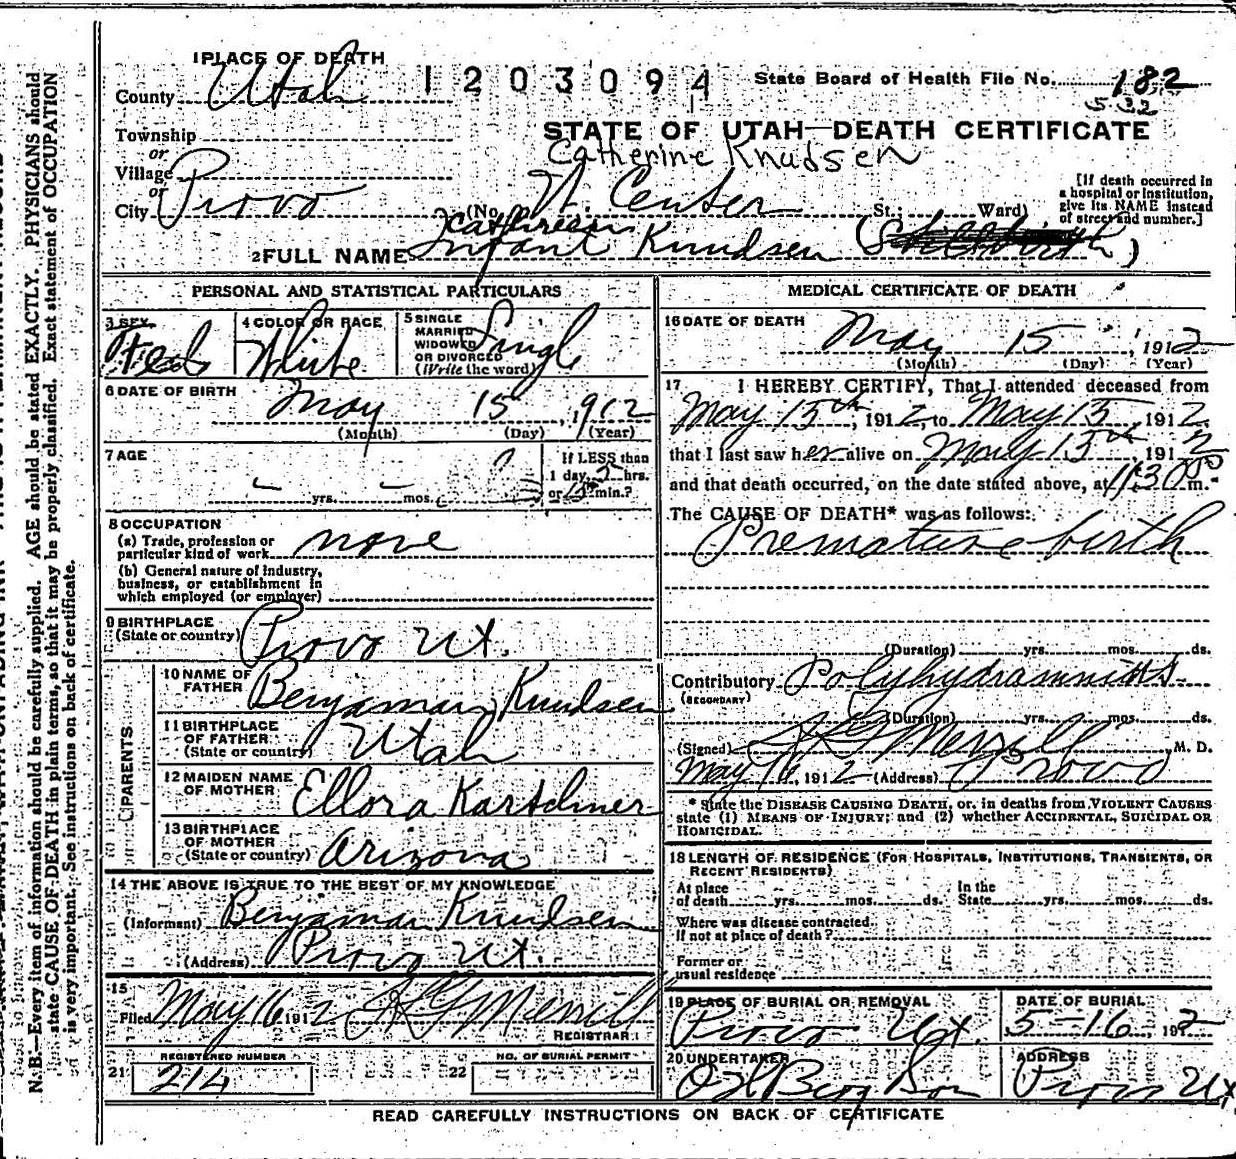 1 PLACE OF DEATH
County Utah
1203094
State Board of Health File No. 182
5-32
Township
or
Village
or
City Provo
STATE OF UTAH—DEATH CERTIFICATE
Catherine Knudsen
(No. W. Center St.; Ward)
[If death occurred in
a hospital or institution,
give its NAME instead
of street and number.]
2 FULL NAME Infant Knudsen
PERSONAL AND STATISTICAL PARTICULARS
3 SEX
4 COLOR OR RACE White
5 SINGLE
MARRIED
WIDOWED
OR DIVORCED
(Write the word) Singl
6 DATE OF BIRTH May 15, 1912
(Month) (Day) (Year)
7 AGE
yrs. mos.
If LESS than
1 day, hrs.
or min.?
8 OCCUPATION
(a) Trade, profession or
particular kind of work none
(b) General nature of industry,
business, or establishment in
which employed (or employer)
9 BIRTHPLACE
(State or country) Provo Ut.
PARENTS
10 NAME OF
FATHER Benjaman Knudsen
11 BIRTHPLACE
OF FATHER
(State or country) Utah
12 MAIDEN NAME
OF MOTHER Ellora Kartchner
13 BIRTHPLACE
OF MOTHER
(State or country) Arizona
14 THE ABOVE IS TRUE TO THE BEST OF MY KNOWLEDGE
(Informant) Benjaman Knudsen
(Address) Provo Ut.
15
Filed May 16 1912 Merrill
REGISTRAR
REGISTERED NUMBER
21 214
NO. OF BURIAL PERMIT
22
MEDICAL CERTIFICATE OF DEATH
16 DATE OF DEATH
May 15, 1912
(Month) (Day) (Year)
17 I HEREBY CERTIFY, That I attended deceased from
May 15th, 1912, to May 15 1912,
that I last saw her alive on May 15th, 1912
and that death occurred, on the date stated above, at 11:30 m.
The CAUSE OF DEATH* was as follows:
Premature birth
(Duration) yrs. mos. ds.
Contributory
(SECONDARY)
(Duration) yrs. mos. ds.
(Signed) Merrill M. D.
May 16, 1912 (Address) Provo
* State the DISEASE CAUSING DEATH, or, in deaths from VIOLENT CAUSES
state (1) MEANS OF INJURY; and (2) whether ACCIDENTAL, SUICIDAL OR
HOMICIDAL.
18 LENGTH OF RESIDENCE (FOR HOSPITALS, INSTITUTIONS, TRANSIENTS, OR
RECENT RESIDENTS)
At place
of death yrs. mos. ds.
In the
State yrs. mos. ds.
Where was disease contracted
If not at place of death?
Former or
usual residence
19 PLACE OF BURIAL OR REMOVAL
Provo Ut.
DATE OF BURIAL
5-16 1912
20 UNDERTAKER
Berg Son
ADDRESS
Provo Ut.
READ CAREFULLY INSTRUCTIONS ON BACK OF CERTIFICATE
N. B.—Every item of information should be carefully supplied. AGE should be stated EXACTLY. PHYSICIANS should
state CAUSE OF DEATH in plain terms, so that it may be properly classified. Exact statement of OCCUPATION
is very important. See instructions on back of certificate.